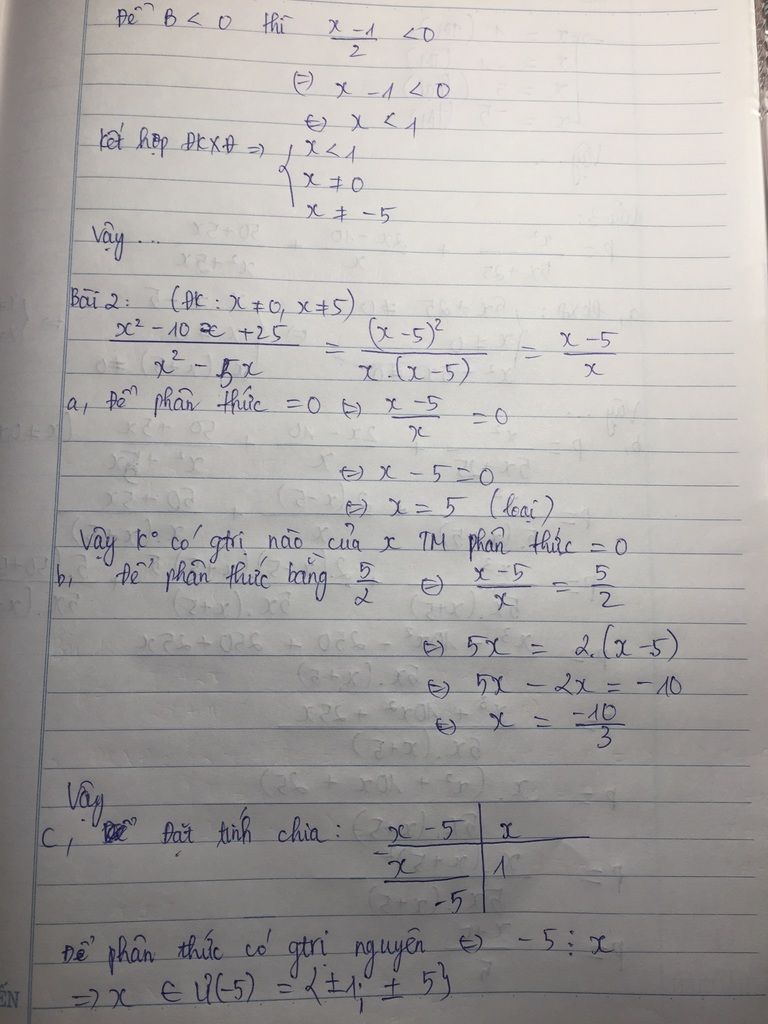 Để B < 0 thì (x - 1)/2 < 0
⇔ x - 1 < 0
⇔ x < 1
Kết hợp ĐKXĐ ⇒ { x < 1
x ≠ 0
x ≠ -5
Vậy ...
Bài 2: (ĐK : x ≠ 0, x ≠ 5)
(x² - 10x + 25)/(x² - 5x) = (x - 5)²/(x.(x - 5)) = (x - 5)/x
a, Để phân thức = 0 ⇔ (x - 5)/x = 0
⇔ x - 5 = 0
⇔ x = 5 (loại)
Vậy k° có gtrị nào của x TM phân thức = 0
b, Để phân thức bằng 5/2 ⇔ (x - 5)/x = 5/2
⇔ 5x = 2.(x - 5)
⇔ 5x - 2x = -10
⇔ x = -10/3
Vậy
c, Đặt tính chia: x - 5 | x
- x | 1
-5
Để phân thức có gtrị nguyên ⇔ -5 ⋮ x
⇒ x ∈ Ư(-5) = {±1; ±5}